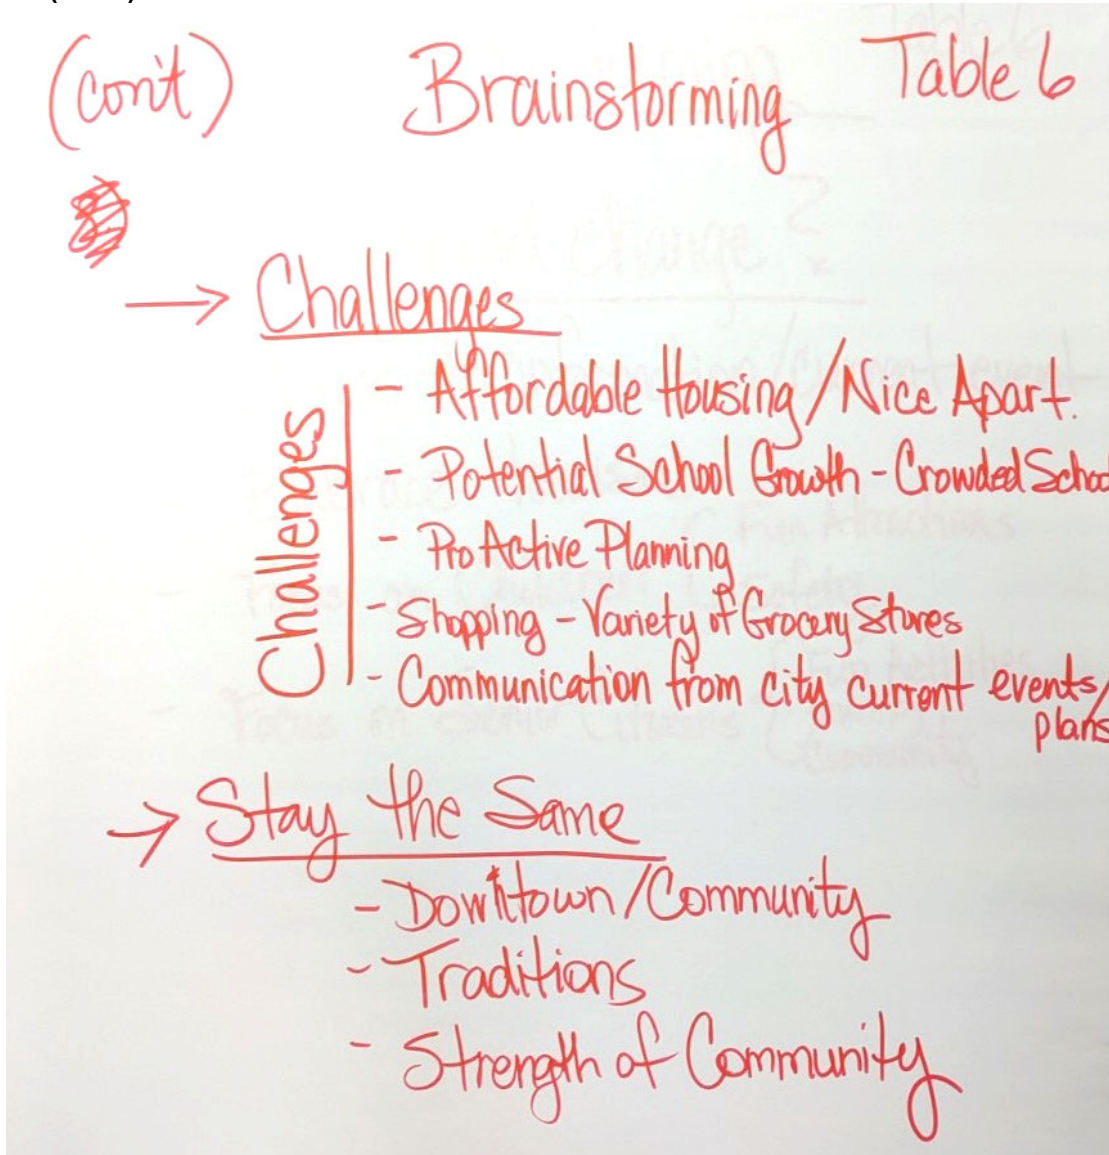 (con't) Brainstorming Table 6
→ Challenges
Challenges
- Affordable Housing / Nice Apart.
- Potential School Growth - Crowded School
- Pro Active Planning
- Shopping - Variety of Grocery Stores
- Communication from city current events/
plans
→ Stay the Same
- Downtown / Community
- Traditions
- Strength of Community